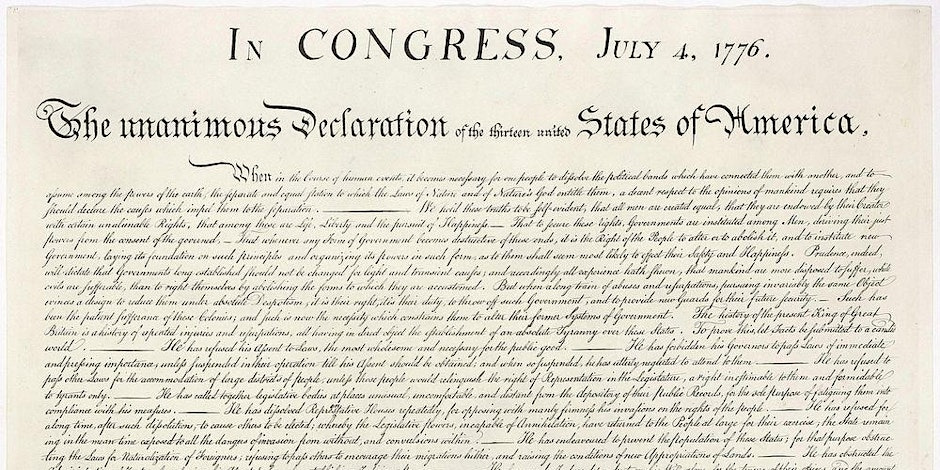 IN CONGRESS, JULY 4, 1776.
The unanimous Declaration of the thirteen united States of America,
When in the Course of human events, it becomes necessary for one people to dissolve the political bands which have connected them with another, and to
assume among the powers of the earth, the separate and equal station to which the Laws of Nature and of Nature's God entitle them, a decent respect to the opinions of mankind requires that they
should declare the causes which impel them to the separation. — We hold these truths to be self-evident, that all men are created equal, that they are endowed by their Creator
with certain unalienable Rights, that among these are Life, Liberty and the pursuit of Happiness. — That to secure these rights, Governments are instituted among Men, deriving their just
powers from the consent of the governed, — That whenever any Form of Government becomes destructive of these ends, it is the Right of the People to alter or to abolish it, and to institute new
Government, laying its foundation on such principles and organizing its powers in such form, as to them shall seem most likely to effect their Safety and Happiness. Prudence, indeed,
will dictate that Governments long established should not be changed for light and transient causes; and accordingly all experience hath shewn, that mankind are more disposed to suffer, while
evils are sufferable, than to right themselves by abolishing the forms to which they are accustomed. But when a long train of abuses and usurpations, pursuing invariably the same Object
evinces a design to reduce them under absolute Despotism, it is their right, it is their duty, to throw off such Government, and to provide new Guards for their future security. — Such has
been the patient sufferance of these Colonies; and such is now the necessity which constrains them to alter their former Systems of Government. The history of the present King of Great
Britain is a history of repeated injuries and usurpations, all having in direct object the establishment of an absolute Tyranny over these States. To prove this, let Facts be submitted to a candid
world. — He has refused his Assent to Laws, the most wholesome and necessary for the public good. — He has forbidden his Governors to pass Laws of immediate
and pressing importance, unless suspended in their operation till his Assent should be obtained; and when so suspended, he has utterly neglected to attend to them. — He has refused to
pass other Laws for the accommodation of large districts of people, unless those people would relinquish the right of Representation in the Legislature, a right inestimable to them and formidable
to tyrants only. — He has called together legislative bodies at places unusual, uncomfortable, and distant from the depository of their public Records, for the sole purpose of fatiguing them into
compliance with his measures. — He has dissolved Representative Houses repeatedly, for opposing with manly firmness his invasions on the rights of the people. — He has refused for
a long time, after such dissolutions, to cause others to be elected; whereby the Legislative powers, incapable of Annihilation, have returned to the People at large for their exercise; the State remain
ing in the mean time exposed to all the dangers of invasion from without, and convulsions within. — He has endeavoured to prevent the population of these States; for that purpose obstruc
ting the Laws for Naturalization of Foreigners; refusing to pass others to encourage their migrations hither, and raising the conditions of new Appropriations of Lands. — He has obstructed the